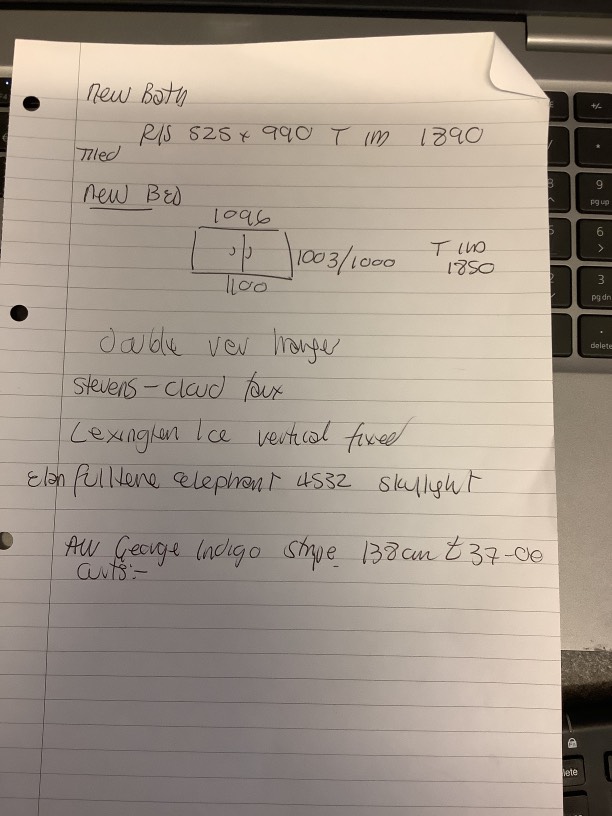 new Bath
R/S 525 x 990 T 1M 1890
Tiled
new BED
1096
1003/1000 T 1M
1850
1100
double
Stevens - cloud faux
Lexington Ice vertical fixed
Elan elephant 4532 skylight
AW George Indigo stripe 138cm £37-00
+/-
*
9
pg up
6
>
3
pg dn
.
delete
lete